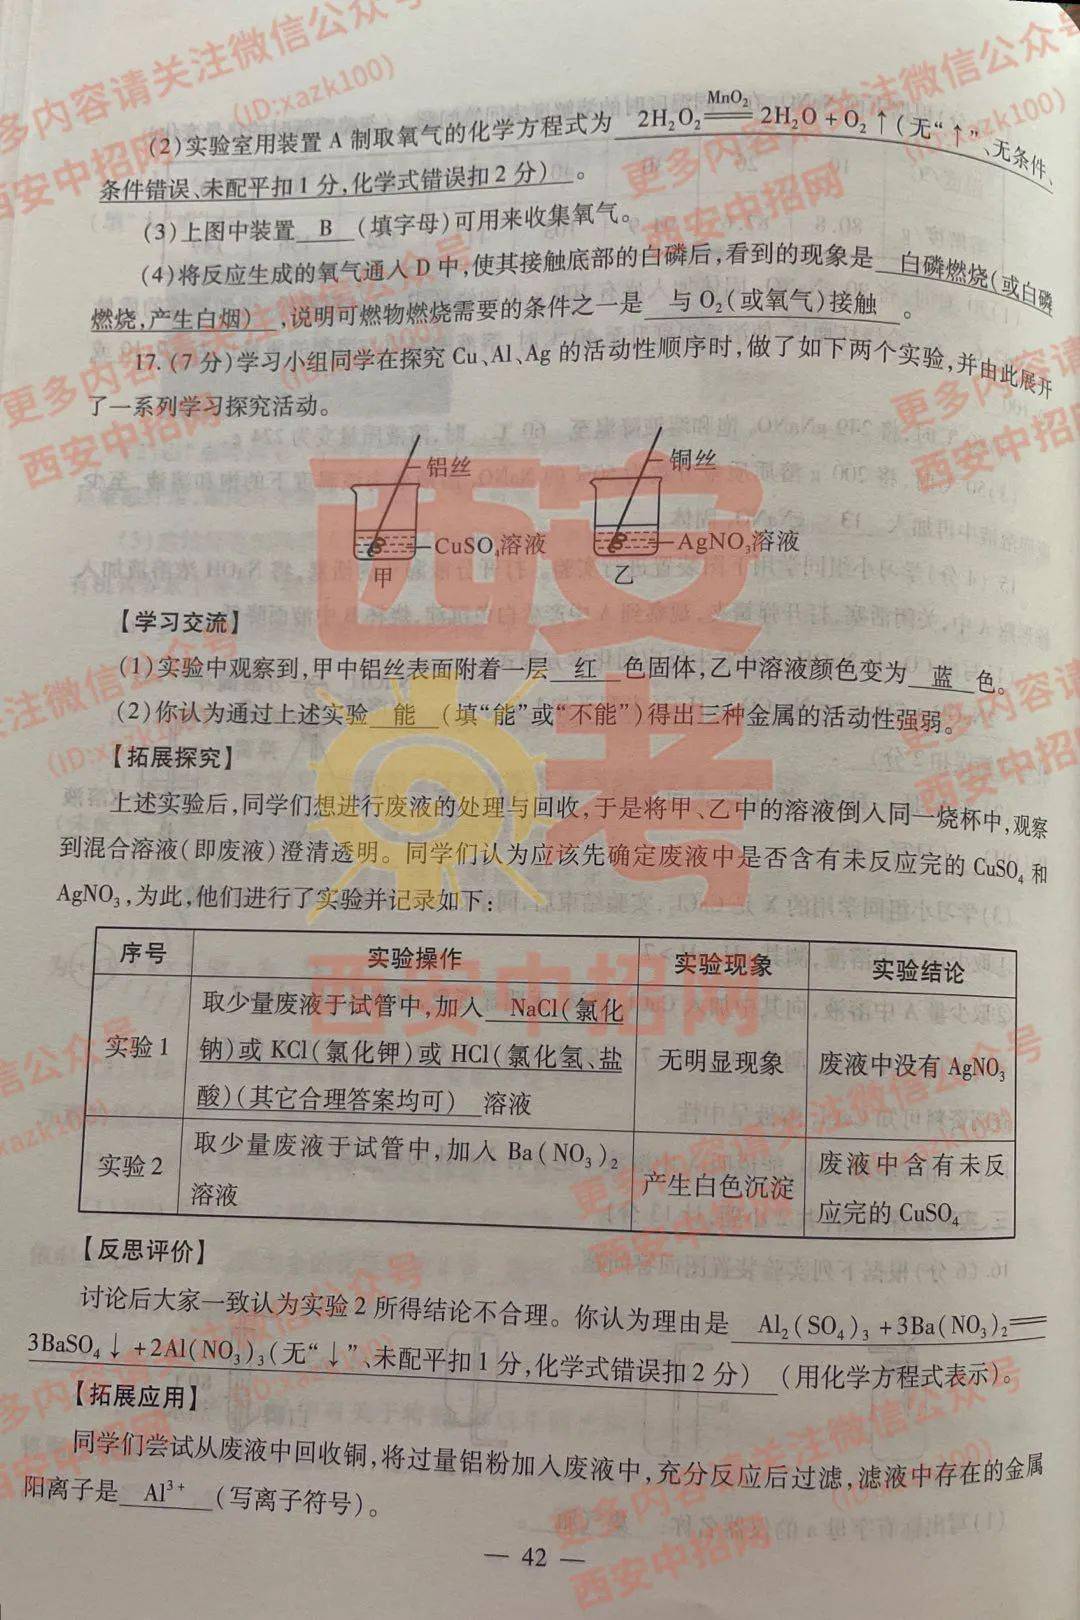 (2)实验室用装置 A 制取氧气的化学方程式为 2H₂O₂ MnO₂ ══ 2H₂O + O₂↑(无“↑”、无条件、
条件错误、未配平扣1分,化学式错误扣2分) 。
(3)上图中装置 B (填字母)可用来收集氧气。
(4)将反应生成的氧气通入 D 中,使其接触底部的白磷后,看到的现象是 白磷燃烧(或白磷
燃烧,产生白烟) ,说明可燃物燃烧需要的条件之一是 与 O₂(或氧气)接触 。
17.(7分)学习小组同学在探究 Cu、Al、Ag 的活动性顺序时,做了如下两个实验,并由此展开
了一系列学习探究活动。
铝丝
铜丝
CuSO₄溶液
AgNO₃溶液
甲
乙
【学习交流】
(1)实验中观察到,甲中铝丝表面附着一层 红 色固体,乙中溶液颜色变为 蓝 色。
(2)你认为通过上述实验 能 (填“能”或“不能”)得出三种金属的活动性强弱。
【拓展探究】
上述实验后,同学们想进行废液的处理与回收,于是将甲、乙中的溶液倒入同一烧杯中,观察
到混合溶液(即废液)澄清透明。同学们认为应该先确定废液中是否含有未反应完的 CuSO₄ 和
AgNO₃,为此,他们进行了实验并记录如下:
序号 实验操作 实验现象 实验结论
实验1
取少量废液于试管中,加入 NaCl(氯化
钠)或 KCl(氯化钾)或 HCl(氯化氢、盐
酸)(其它合理答案均可) 溶液
无明显现象
废液中没有 AgNO₃
实验2
取少量废液于试管中,加入 Ba(NO₃)₂
溶液
产生白色沉淀
废液中含有未反
应完的 CuSO₄
【反思评价】
讨论后大家一致认为实验2所得结论不合理。你认为理由是 Al₂(SO₄)₃ +3Ba(NO₃)₂══
3BaSO₄↓ +2Al(NO₃)₃(无“↓”、未配平扣1分,化学式错误扣2分) (用化学方程式表示)。
【拓展应用】
同学们尝试从废液中回收铜,将过量铝粉加入废液中,充分反应后过滤,滤液中存在的金属
阳离子是 Al³⁺ (写离子符号)。
— 42 —
更多内容请关注微信公众号
(ID:xazk100)
西安中招网
西安中考
西安中招网